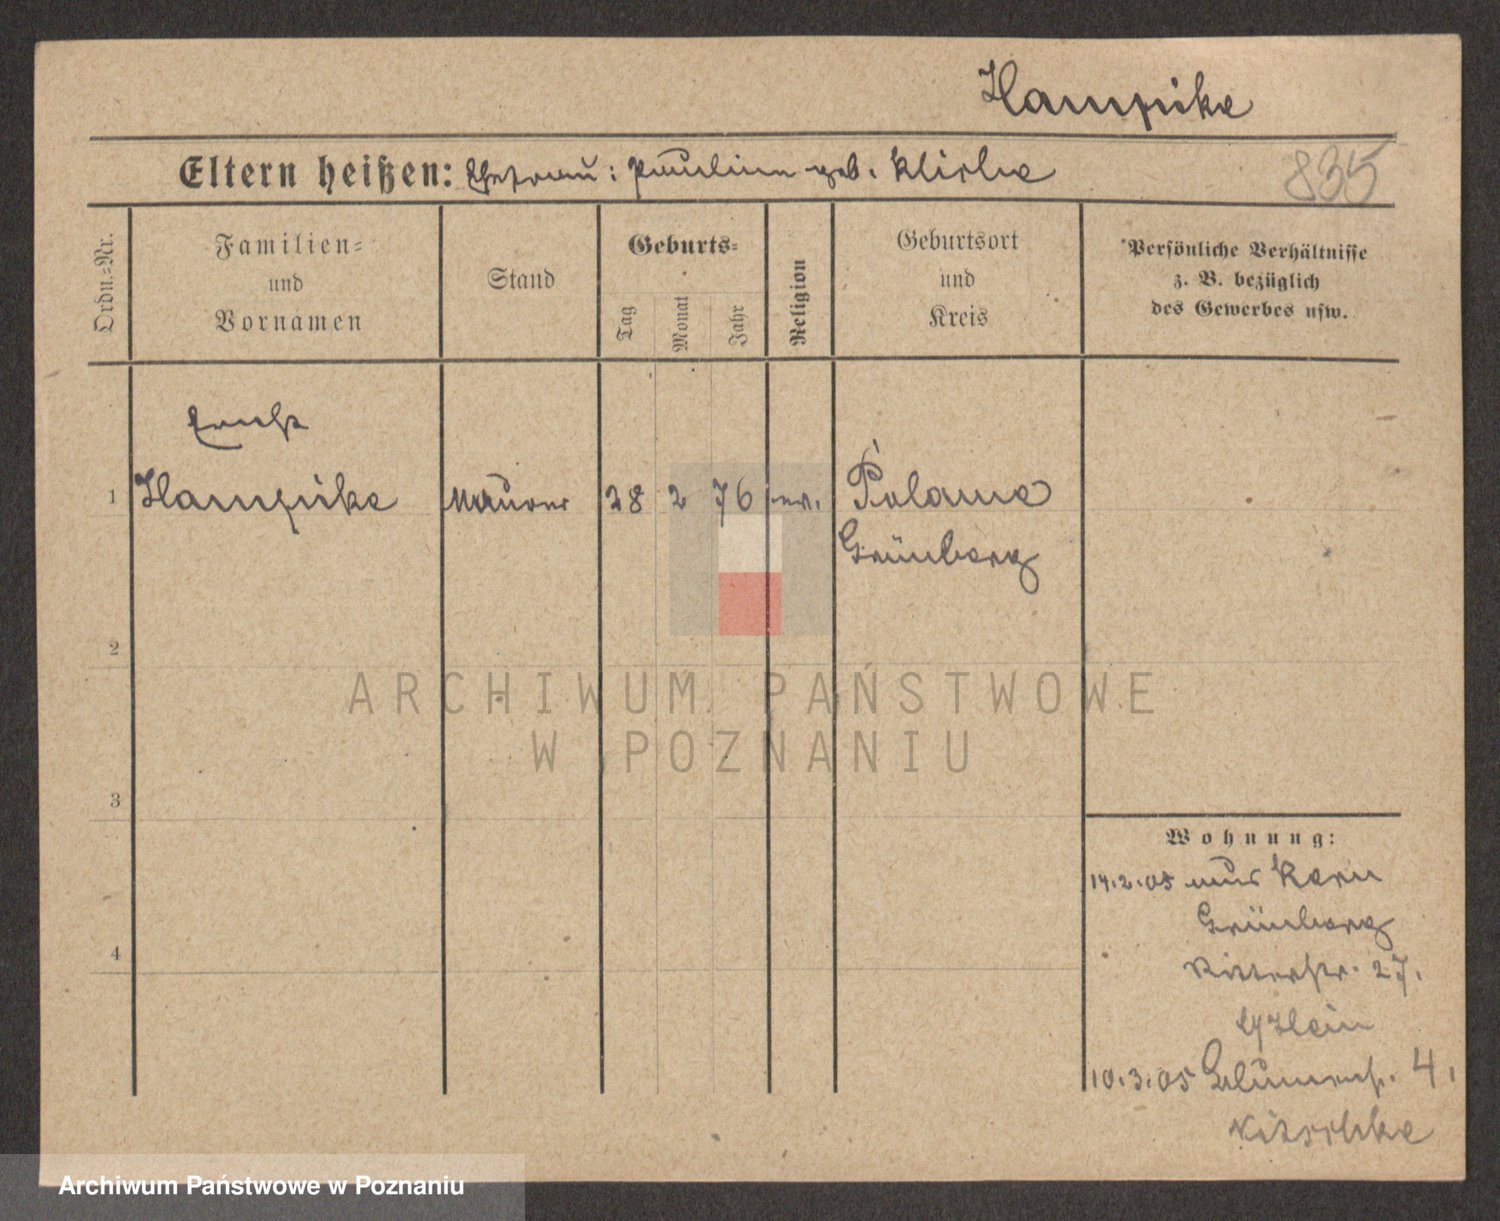 Hampike
Eltern heißen: Ehefrau: Pauline geb. Klischke
835
Ordn.=Nr.
Familien=
und
Vornamen
Stand
Geburts=
Tag
Monat
Jahr
Religion
Geburtsort
und
Kreis
Persönliche Verhältnisse
z. B. bezüglich
des Gewerbes usw.
Ernst
1 Hampike Maurer 28 2 76 ev. Polame
Grünberg
2
3
4
Wohnung:
14.2.05 aus Kern
Grünberg
Ritterstr. 27.
b/Hein
10.3.05 Blumenstr. 4.
Nitschke
ARCHIWUM PAŃSTWOWE
W POZNANIU
Archiwum Państwowe w Poznaniu